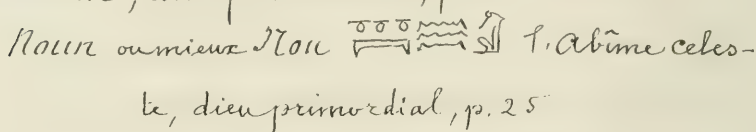 Noun ou mieux Nou 𓏌𓏌𓏌𓇯𓈗𓀭 l'Abîme celes-
te, dieu primordial, p. 25